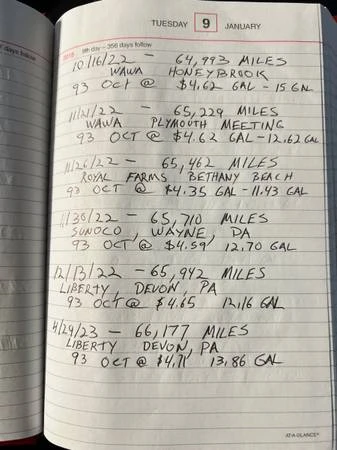 TUESDAY 9 JANUARY
2018 9th day – 356 days follow
days follow
10/16/22 – 64,993 MILES
WAWA HONEYBROOK
93 OCT @ $4.62 GAL – 15 GAL
11/21/22 – 65,229 MILES
WAWA PLYMOUTH MEETING
93 OCT @ $4.62 GAL – 12.62 GAL
11/26/22 – 65,462 MILES
ROYAL FARMS BETHANY BEACH
93 OCT @ $4.35 GAL – 11.43 GAL
11/30/22 – 65,710 MILES
SUNOCO, WAYNE, PA
93 OCT @ $4.59 12.70 GAL
12/13/22 – 65,942 MILES
LIBERTY, DEVON, PA
93 OCT @ $4.65 12.16 GAL
4/29/23 – 66,177 MILES
LIBERTY DEVON, PA
93 OCT @ $4.71 13.86 GAL
AT-A-GLANCE®